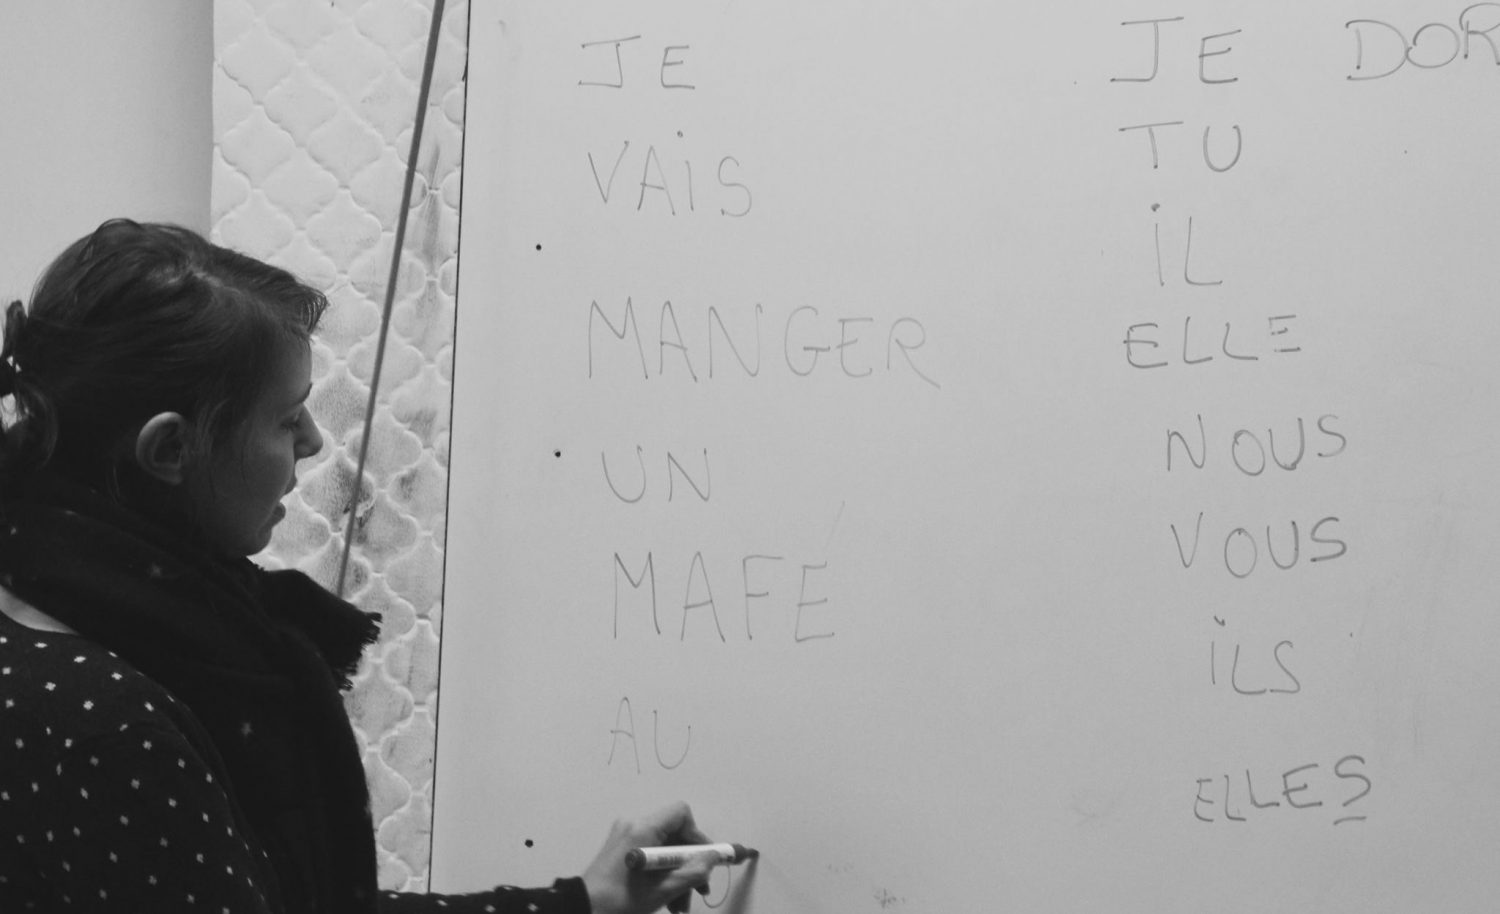 JE
VAIS
MANGER
UN
MAFÉ
AU
JE DOR
TU
IL
ELLE
NOUS
VOUS
ILS
ELLES